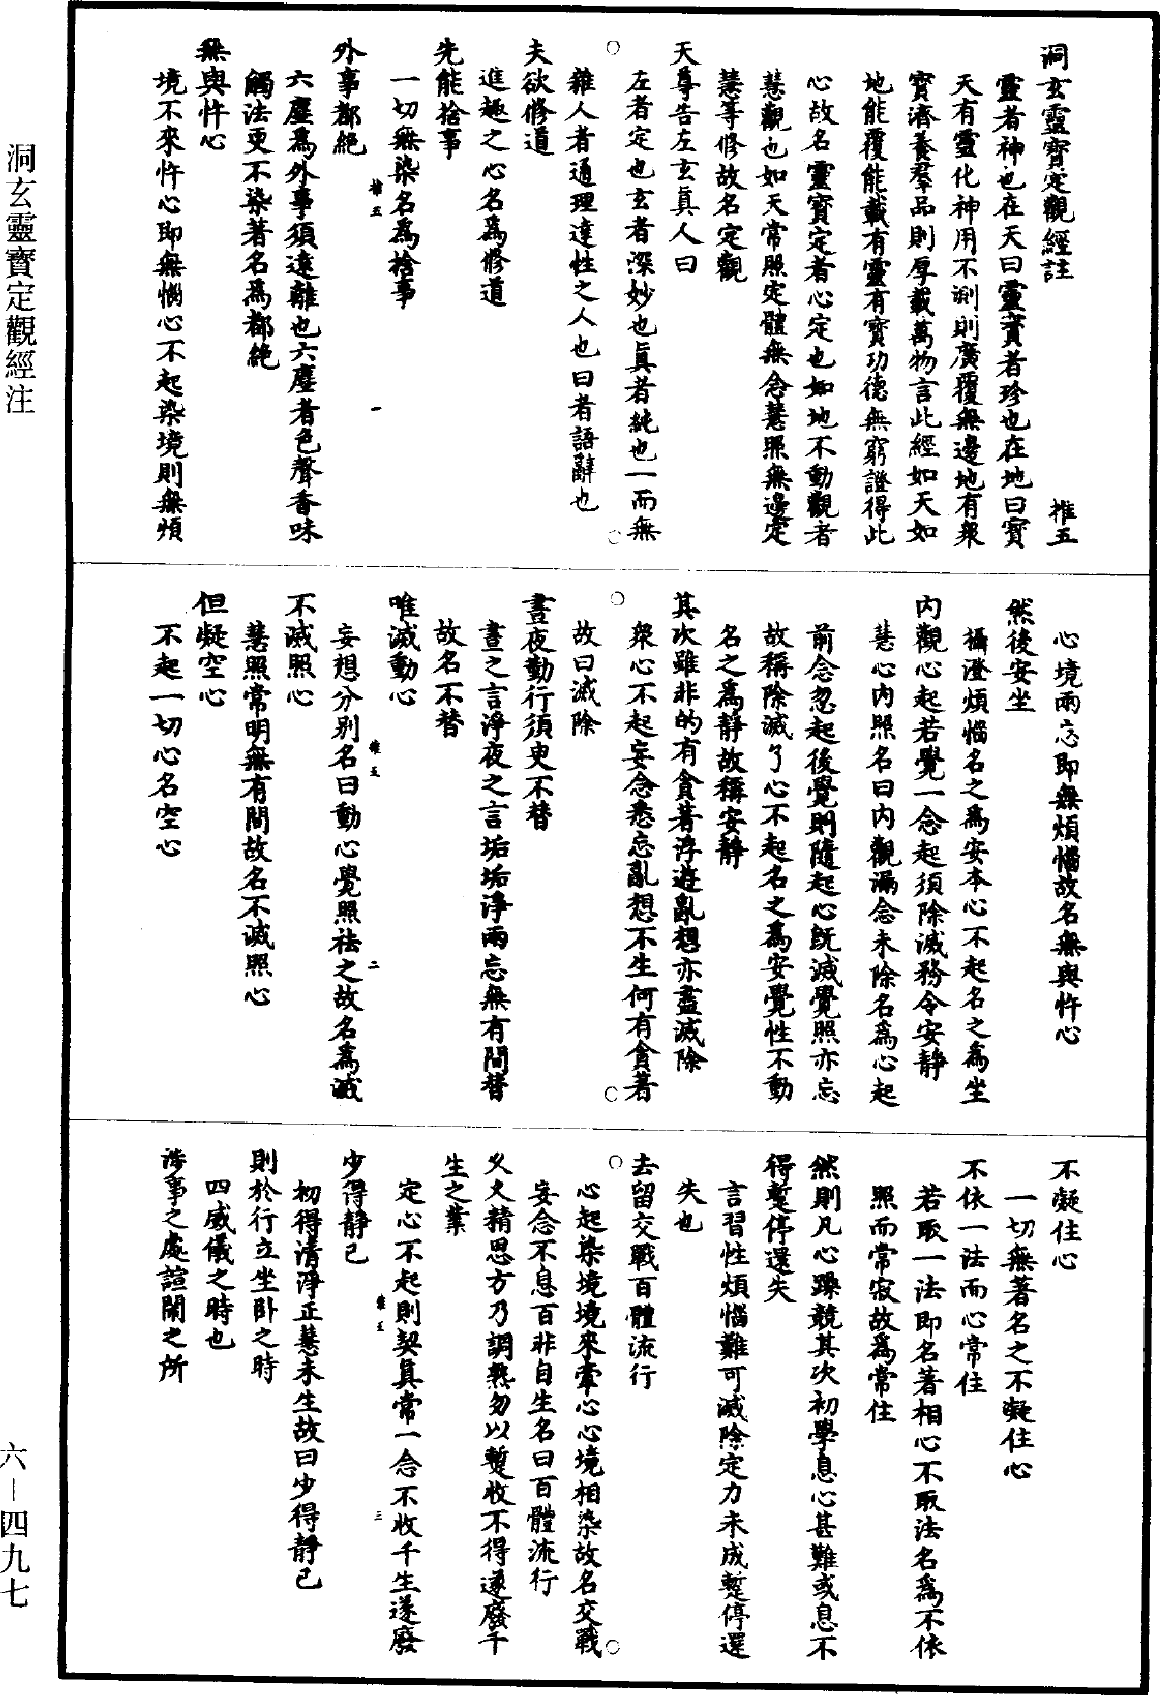 洞玄靈寶定觀經註
推五
靈者神也在天曰靈寶者珍也在地曰寶
天有靈化神用不測則廣覆無邊地有衆
寶濟養羣品則厚載萬物言此經如天如
地能覆能載有靈有寶功德無窮證得此
心故名靈寶定者心定也如地不動觀者
慧觀也如天常照定體無念慧照無邊定
慧等修故名定觀
天尊告左玄真人曰
左者定也玄者深妙也真者純也一而無
雜人者通理達性之人也曰者語辭也
夫欲修道
進趣之心名爲修道
先能捨事
一切無染名爲捨事
外事都絕
推五
一
六塵爲外事須遠離也六塵者色聲香味
觸法更不染著名爲都絕
無與忤心
境不來忤心即無惱心不起染境則無煩
心境兩忘即無煩惱故名無與忤心
然後安坐
攝澄煩惱名之爲安本心不起名之爲坐
內觀心起若覺一念起須除滅務令安靜
慧心內照名曰內觀漏念未除名爲心起
前念忽起後覺則隨起心既滅覺照亦忘
故稱除滅了心不起名之爲安覺性不動
名之爲靜故稱安靜
其次雖非的有貪著浮遊亂想亦盡滅除
衆心不起妄念悉忘亂想不生何有貪著
故曰滅除
晝夜勤行須臾不替
晝之言淨夜之言垢垢淨兩忘無有間替
故名不替
唯滅動心
推五
二
妄想分別名曰動心覺照祛之故名爲滅
不滅照心
慧照常明無有間故名不滅照心
但凝空心
不起一切心名空心
不凝住心
一切無著名之不凝住心
不依一法而心常住
若取一法即名著相心不取法名爲不依
照而常寂故爲常住
然則凡心躁競其次初學息心甚難或息不
得蹔停還失
言習性煩惱難可滅除定力未成蹔停還
失也
去留交戰百體流行
心起染境境來牽心心境相染故名交戰
妄念不息百非自生名曰百體流行
乂乂精思方乃調熟勿以蹔收不得遂廢千
生之業
定心不起則契真常一念不收千生遂廢
少得靜已
推五
三
初得清淨正慧未生故曰少得靜已
則於行立坐臥之時
四威儀之時也
涉事之處諠鬧之所
洞玄靈寶定觀經注
六－四九七